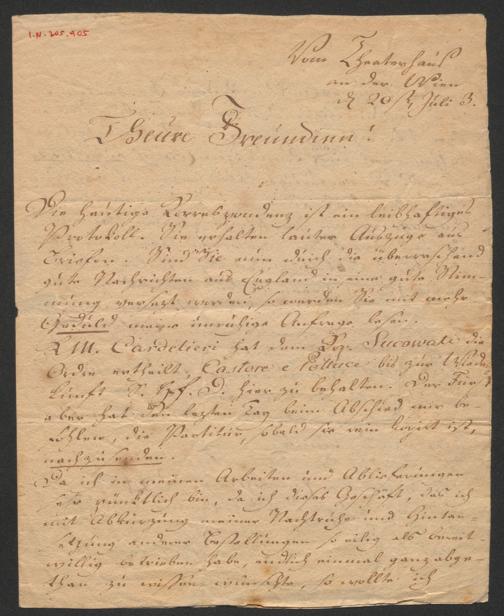 I.N. 205.905
Vom Theaterhaus
an der Wien
d 20t Juli 3.
Theure Freundinn!
Die heutige Korrespondenz ist ein leibhaftiges
Protokoll. Sie erhalten lauter Auszüge aus
Briefen. Sind Sie nun durch die überraschend
gute Nachrichten aus England in eine gute Stim-
mung versezt worden, so werden Sie mit mehr
Geduld meine unruhige Anfrage lesen.
K.M. Cardelieri hat dem Sucowati die
Ordre ertheilt, Castore e Polluce bis zur
kunft S. D. hier zu behalten. Der Fürst
aber hat den lezten Tag beim Abschied mir be-
fohlen, die Partitur, sobald sie rein copirt ist,
nachzusenden.
Da ich in meinen Arbeiten und Ablieferungen
sehr pünktlich bin, da ich dieses Geschäft, das ich
mit Abkürzung meiner Nachtruhe und Hintan-
setzung anderer Bestellungen so eilig als bereit
willig betrieben habe, endlich einmal ganz abge
than zu wissen wünschte, so wollte ich